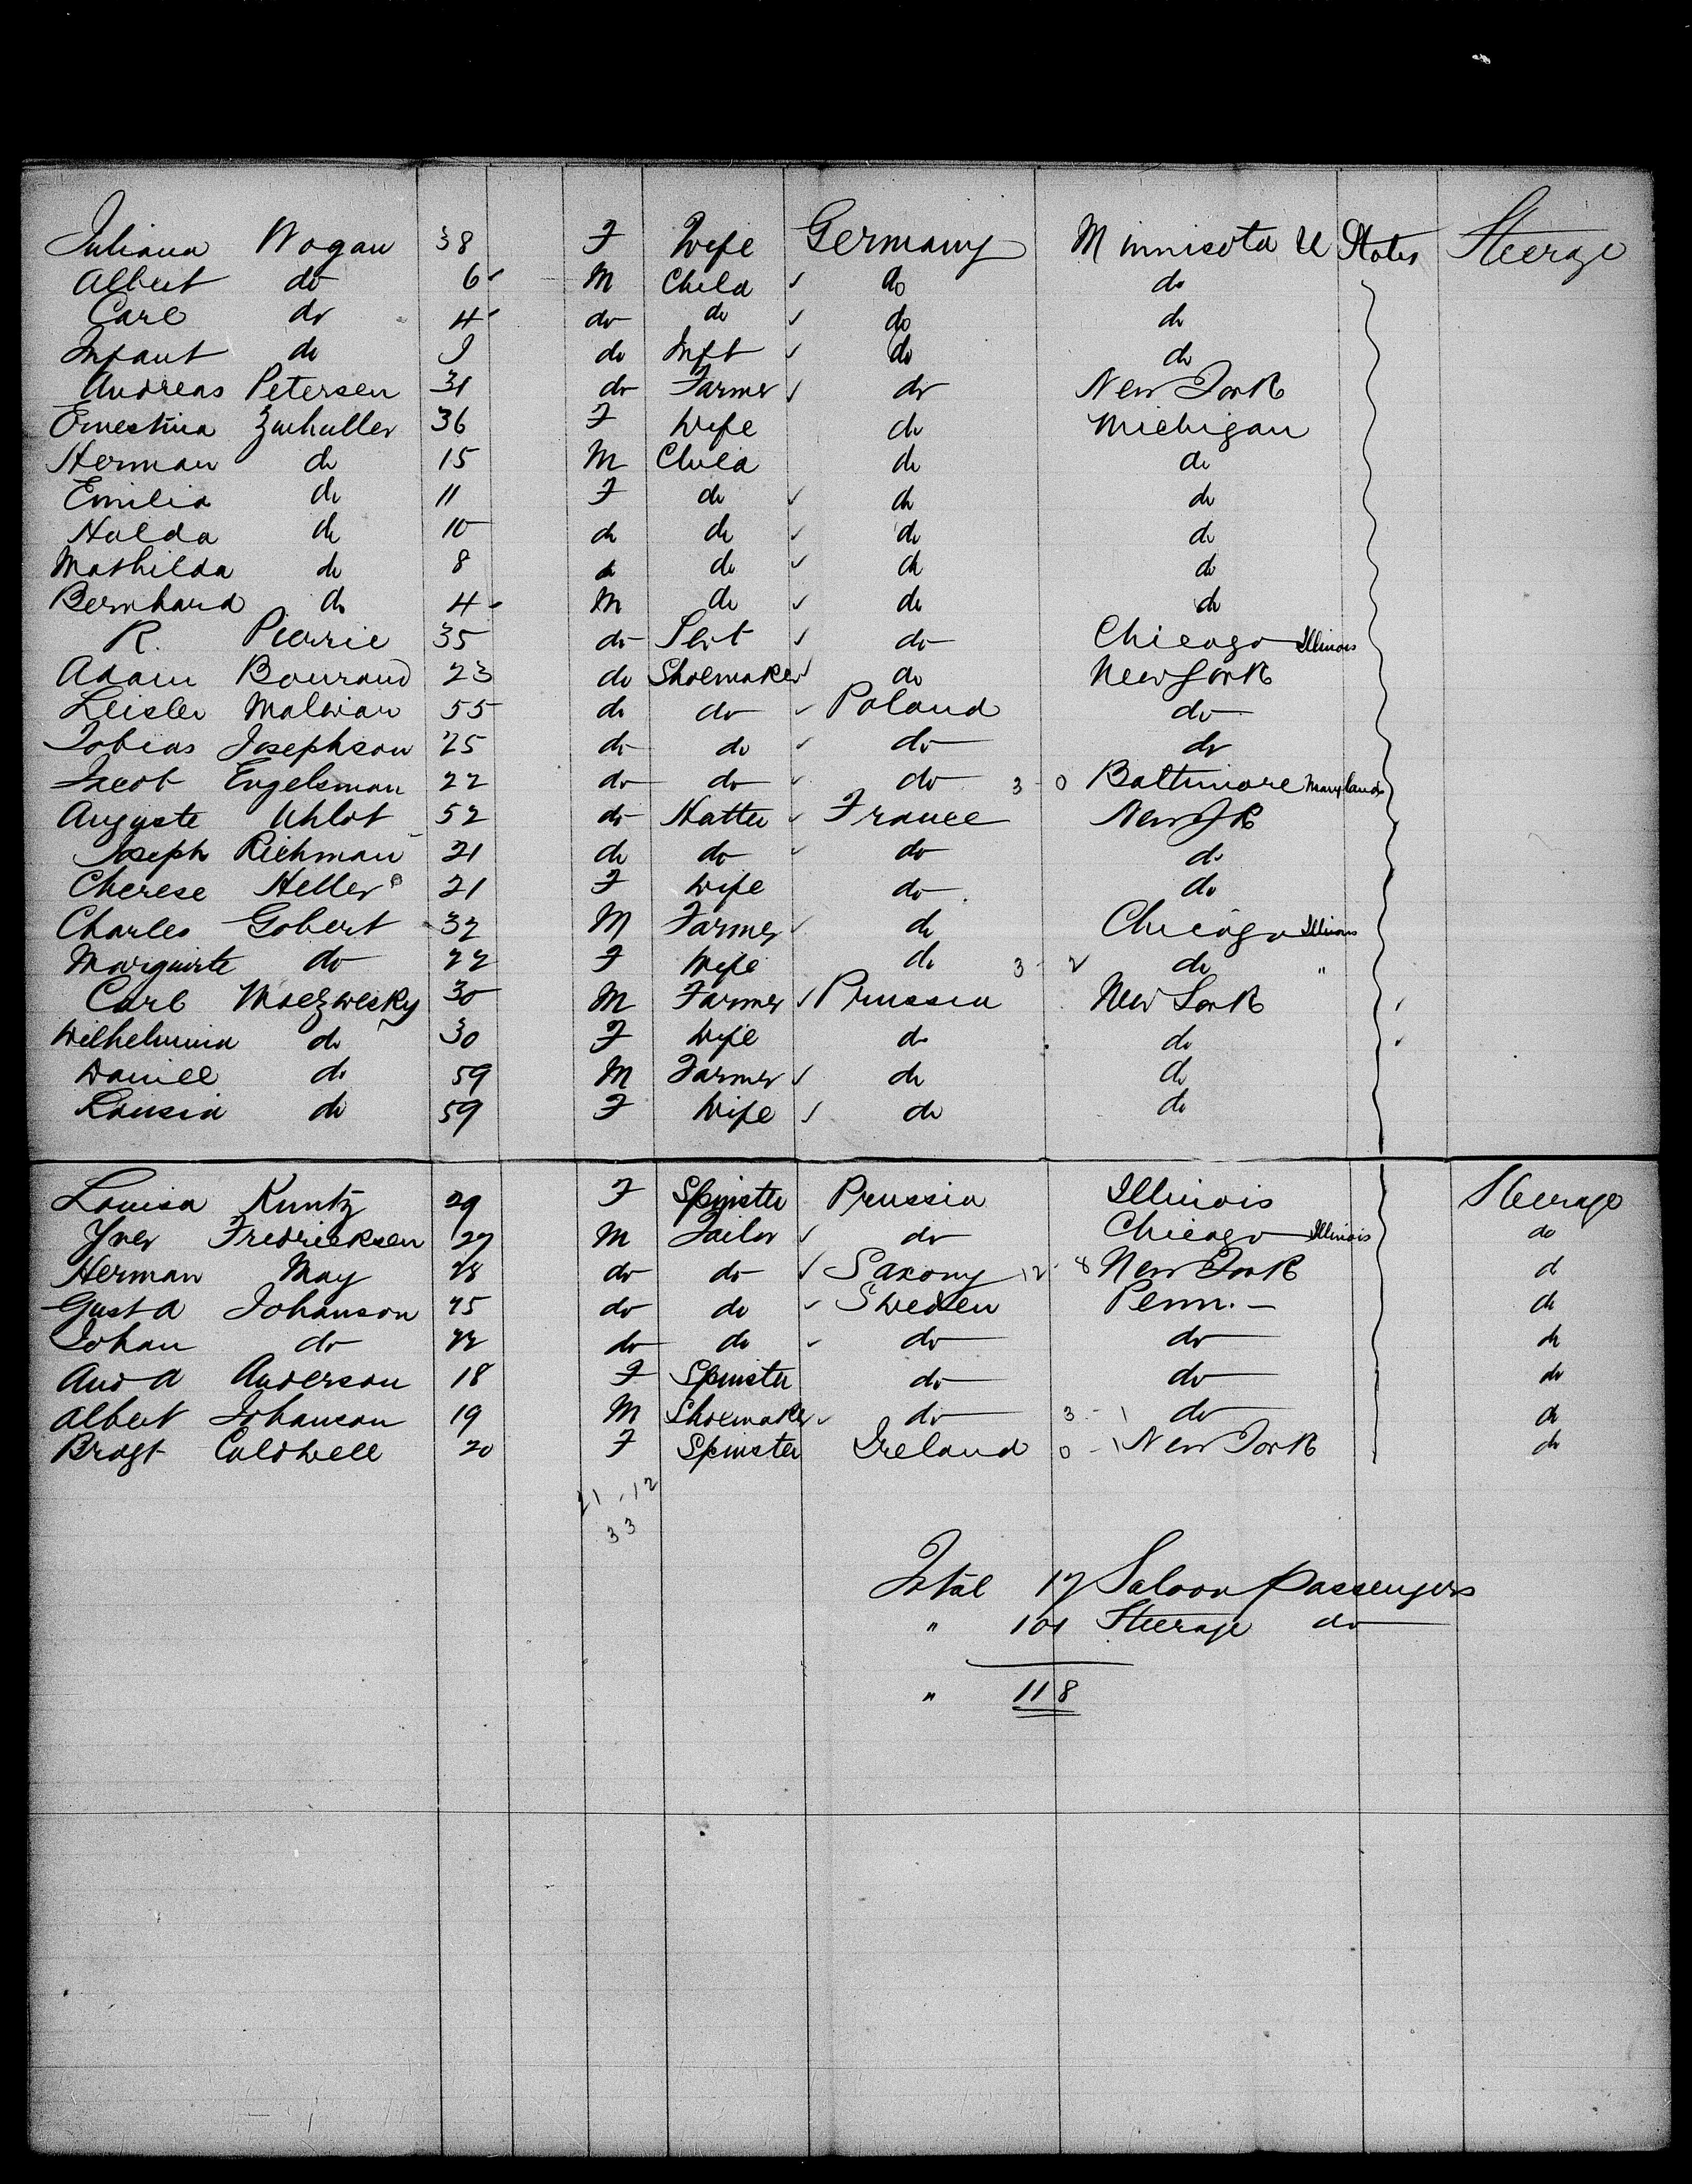 Juliana Wogan 38 F Wife Germany Minnisota U States Steerage
Albert do 6 M Child ✓ do do
Carl do 4 do do ✓ do do
Infant do do Inft ✓ do do
Andreas Petersen 31 do Farmer ✓ do New York
Ernestina Zuchuller 36 F Wife do Michigan
Herman do 15 M Child do do
Emilia do 11 F do ✓ do do
Hulda do 10 do do ✓ do do
Mathilda do 8 do do ✓ do do
Bernhard do 4 M do ✓ do do
R. 35 do ✓ do Chicago Illinois
Adam Bourand 23 do Shoemaker ✓ do New York
Leisler Malwian 55 do do ✓ Poland do
Tobias Josephson 25 do do ✓ do do
Jacob Engelsman 22 do do ✓ do 3 - 0 Baltimore Maryland
Auguste Uhlot 52 do Hatter ✓ France New Yk
Joseph Richman 21 do do ✓ do do
Cherese Heller 21 F Wife do do
Charles Gobert 32 M Farmer ✓ do Chicago Illinois
Marguirte do 22 F Wife do 3 - 2 do "
Carl Moezwesky 30 M Farmer ✓ Prussia New York
Wilhelmina do 30 F Wife do do
Daniel do 59 M Farmer ✓ do do
Lousia do 59 F Wife ✓ do do
Louisa Kuntz 29 F Spinster Prussia Illinois Steerage
Yver Fredricksen 27 M Tailor ✓ do Chicago Illinois do
Herman May 28 do do ✓ Saxony 12 - 8 New York do
Gust A Johanson 25 do do ✓ Sweden Penn. - do
Johan do 22 do do ✓ do do do
And A Anderson 18 F Spinster do do do
Albert Johanson 19 M Shoemaker ✓ do 3 - 1 do do
Bragt Caldwell 20 F Spinster Ireland 0 - 1 New York do
21 . 12
33
Total 17 Saloon Passengers
" 101 Steerage do
" 118